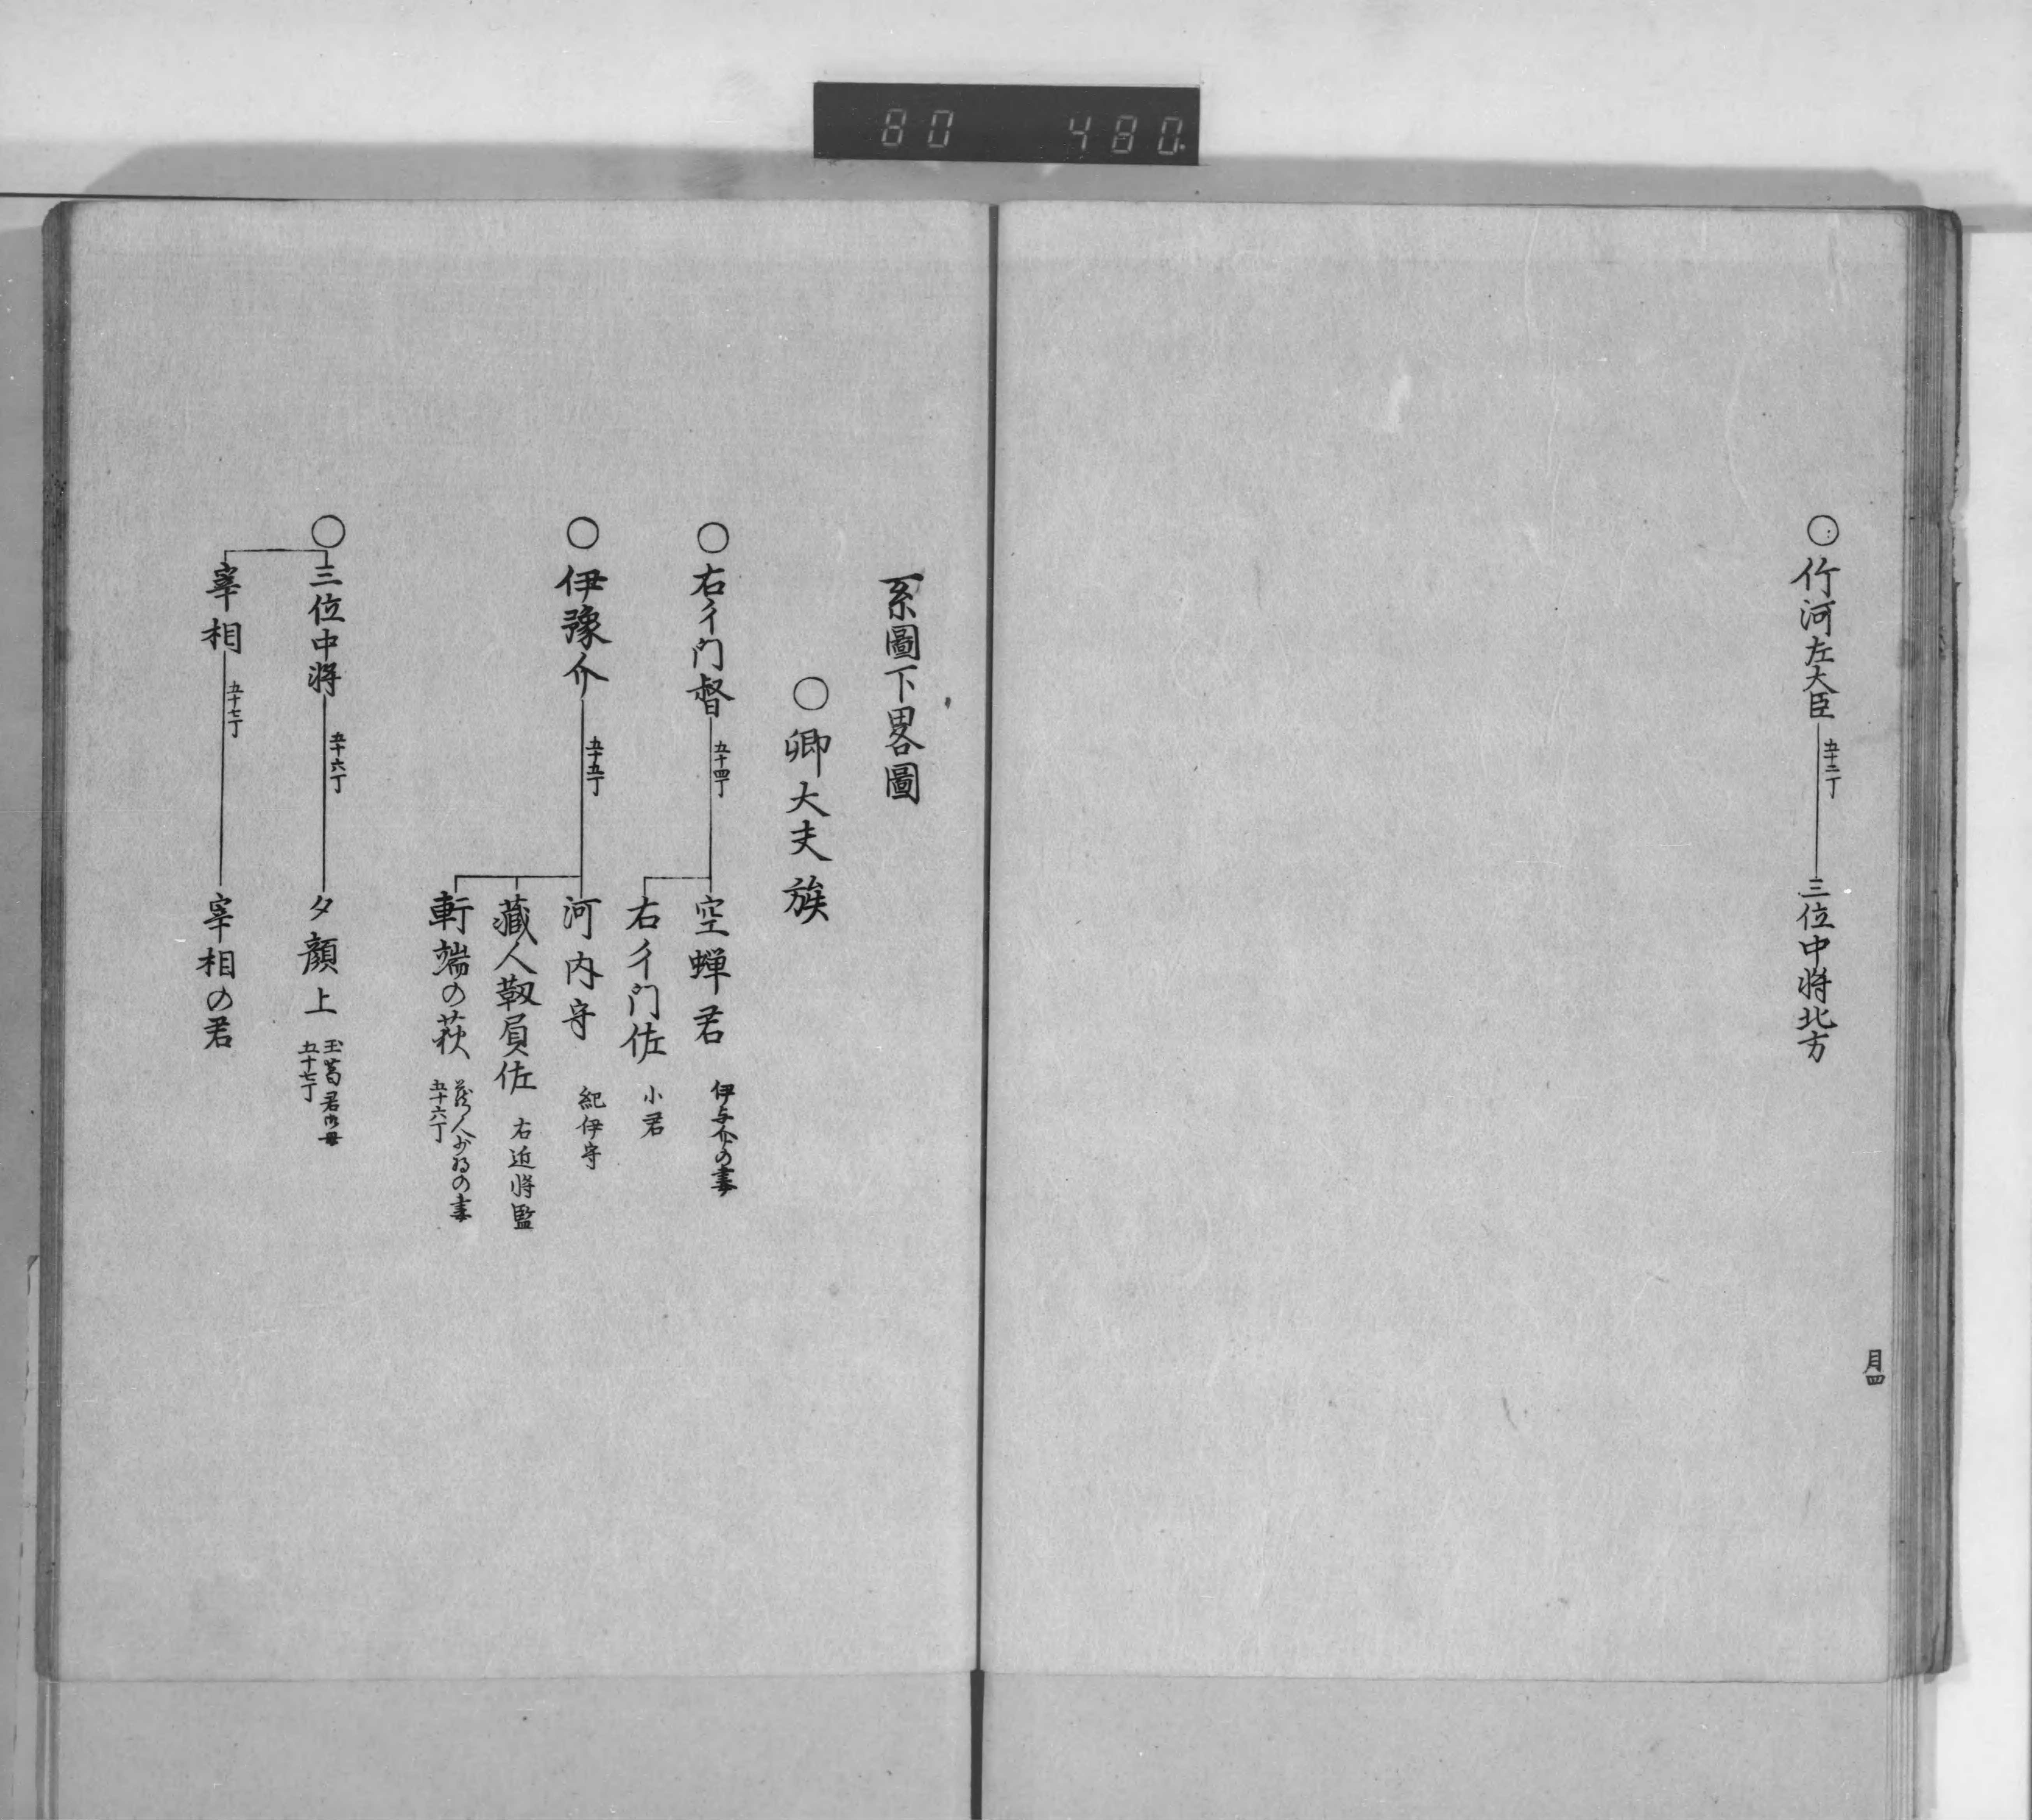 80 480
○竹河左大臣 五十二丁 三位中将北方
月四
系圖下畧圖
○卿大夫族
○右彳門督 五十四丁 空蝉君 伊与介の妻
右彳門佐 小君
○伊豫介 五十五丁 河内守 紀伊守
蔵人靱屓佐 右近将監
軒端の萩 蔵人少将の妻
五十六丁
○三位中将 五十六丁 夕顔上 玉葛君御母
五十七丁
宰相 五十七丁 宰相の君